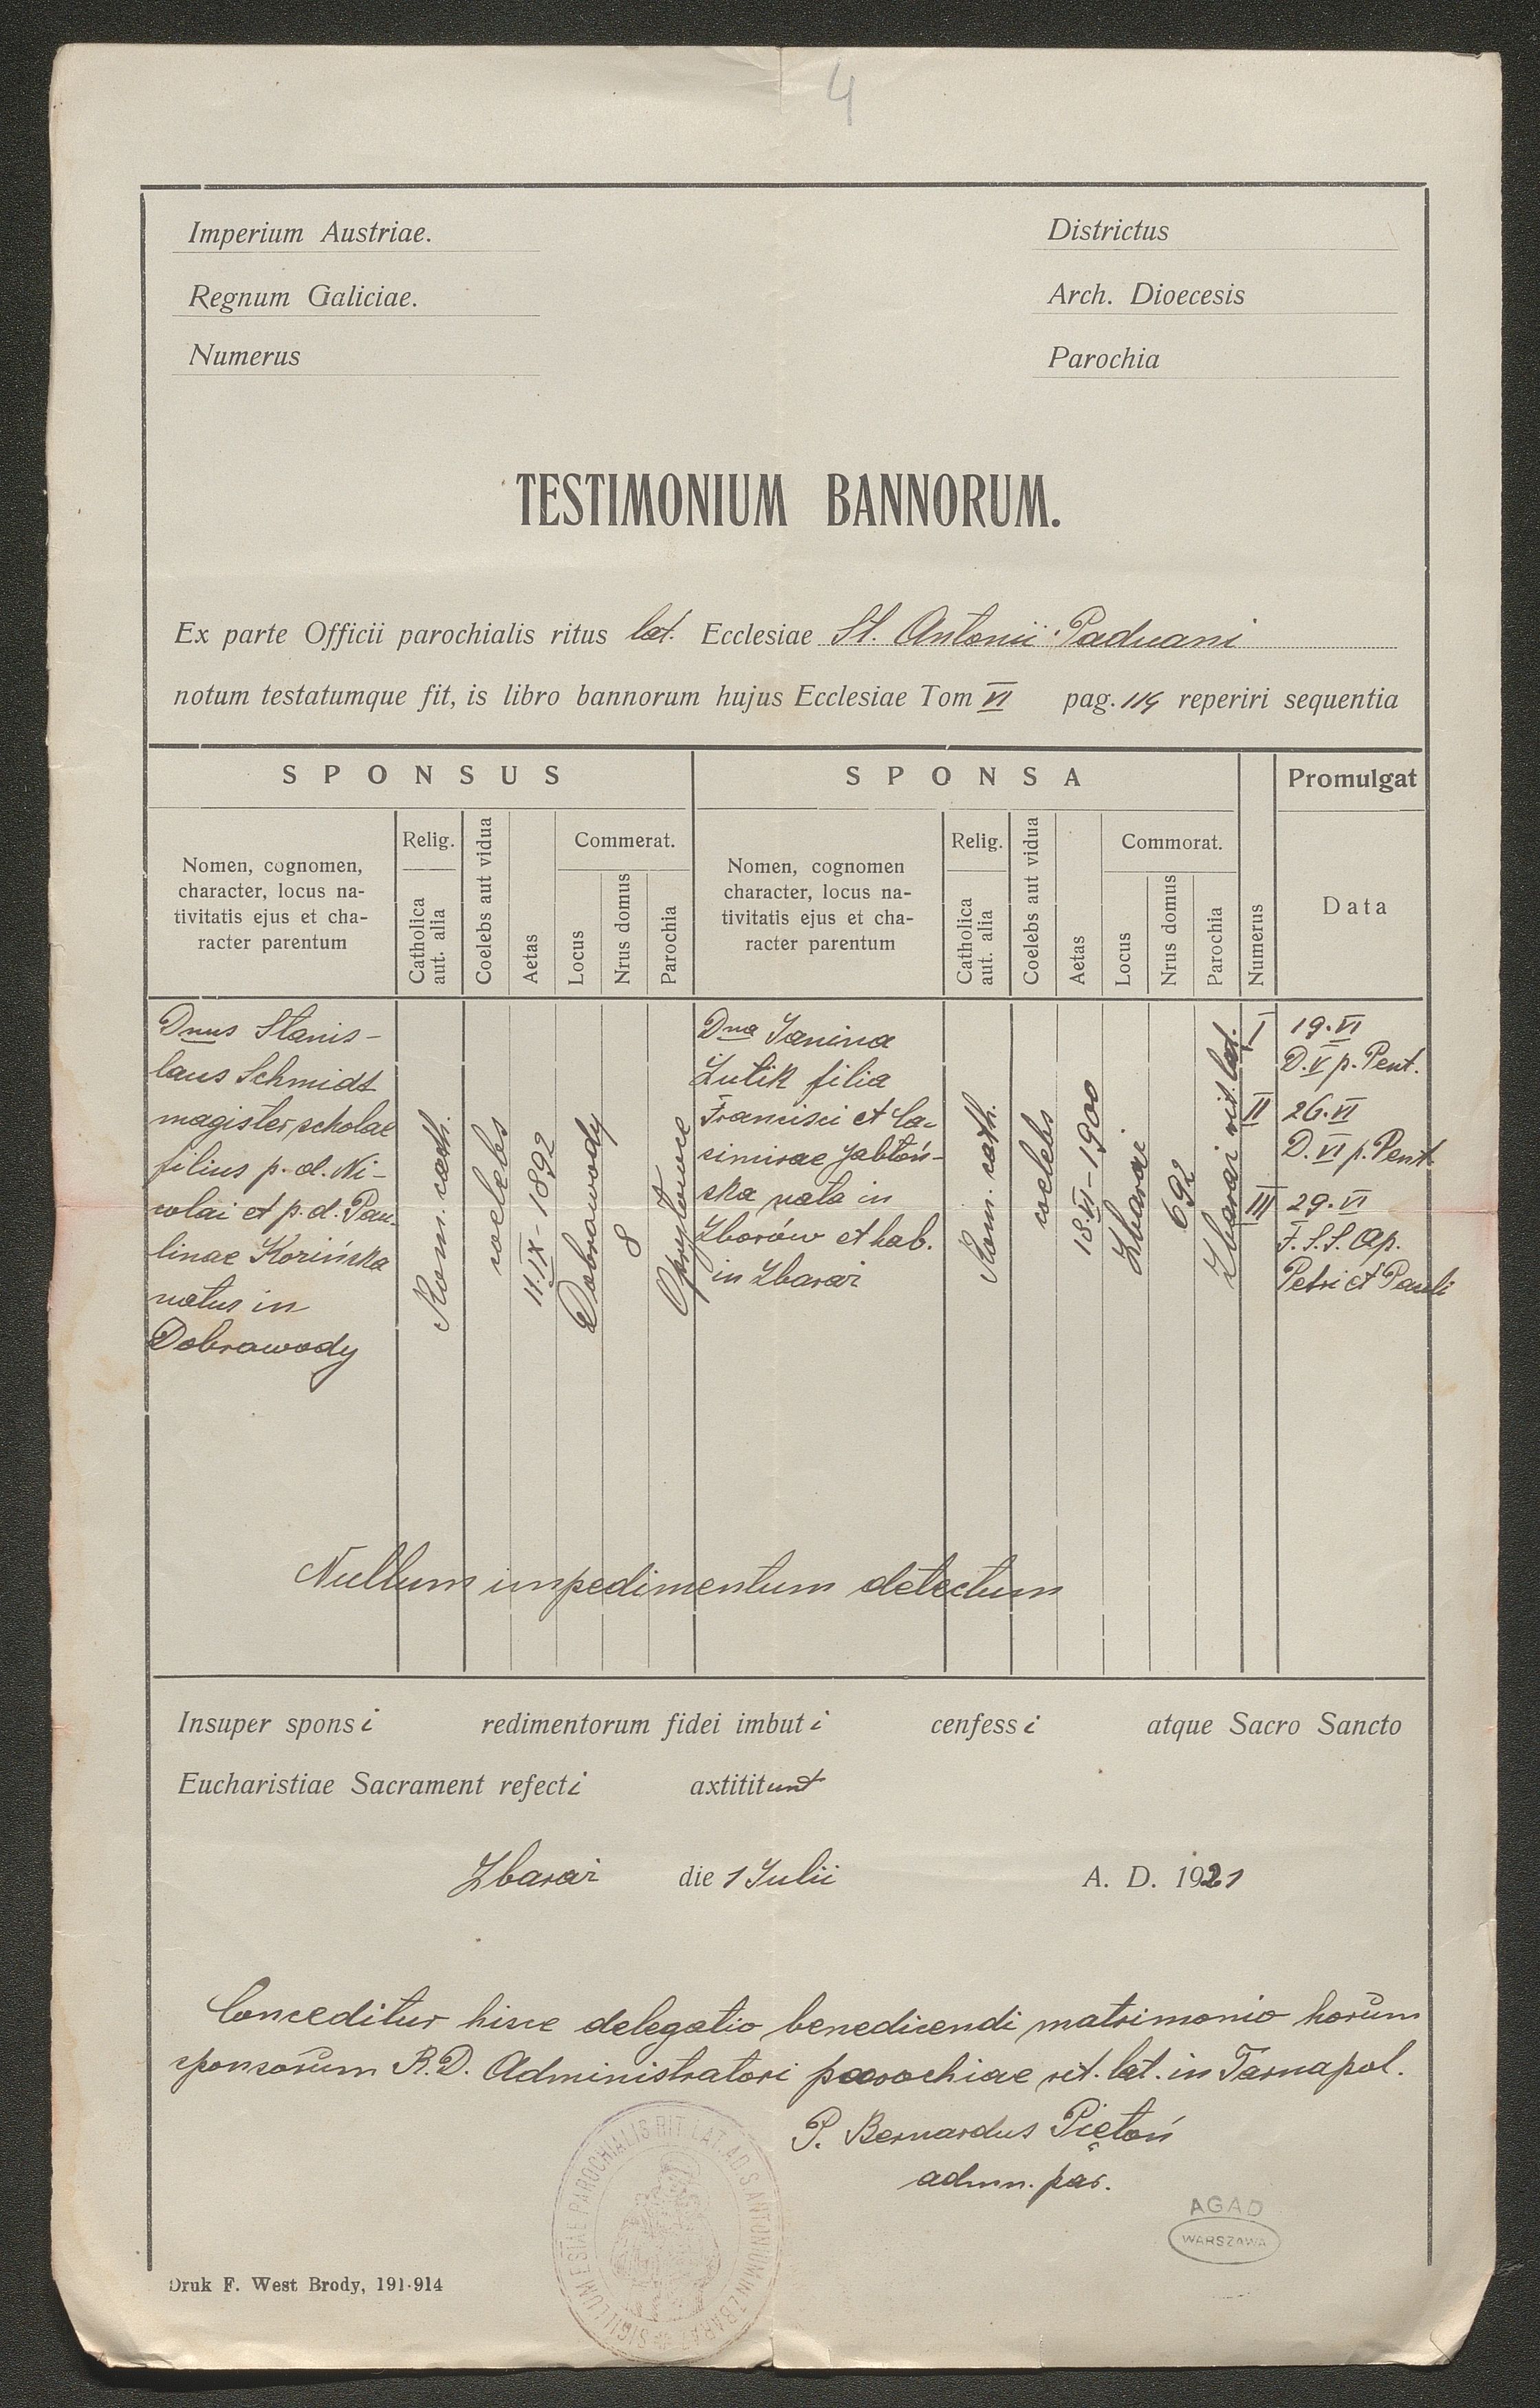 4
Imperium Austriae.
Regnum Galiciae.
Numerus
Districtus
Arch. Dioecesis
Parochia
TESTIMONIUM BANNORUM.
Ex parte Officii parochialis ritus lat. Ecclesiae St. Antonii Paduani
notum testatumque fit, is libro bannorum hujus Ecclesiae Tom VI pag. 114 reperiri sequentia
SPONSUS
SPONSA
Promulgat
Nomen, cognomen,
character, locus na-
tivitatis ejus et cha-
racter parentum
Relig.
Catholica
aut. alia
Coelebs aut vidua
Aetas
Commerat.
Locus
Nrus domus
Parochia
Nomen, cognomen
character, locus na-
tivitatis ejus et cha-
racter parentum
Relig.
Catholica
aut. alia
Coelebs aut vidua
Aetas
Commorat.
Locus
Nrus domus
Parochia
Numerus
Data
Dnus Stanis-
laus Schmidt
magister scholae
filius p. d. Ni-
colai et p. d. Pau-
linae Korińska
natus in
Dobrawody
Rom. cath.
coelebs
11.IX-1892
Dobrawody
8
Opryłowce
Dna Janina
Lutik filia
Francisci et Ca-
simirae Jabłoń-
ska nata in
Zborów et hab.
in Zbaraż
Rom. cath.
coelebs
18.VI-1900
Zbaraż
692
Zbaraż rit. lat.
I
19.VI
D. V p. Pent.
II
26.VI
D. VI p. Pent.
III
29.VI
F. S.S. Ap.
Petri et Pauli
Nullum impedimentum detectum
Insuper spons i redimentorum fidei imbut i cenfess i atque Sacro Sancto
Eucharistiae Sacrament refect i axtitit unt
Zbaraż die 1 Julii A. D. 1921
Conceditur hisce delegatio benedicendi matrimonio horum
sponsorum R. D. Administratori parochiae rit. lat. in Tarnapol.
P. Bernardus Piętoń
admn. par.
SIGILLUM ECCLESIAE PAROCHIALIS RIT. LAT. AD S. ANTONIUM IN ZBARAŻ
AGAD
WARSZAWA
Druk F. West Brody, 191·914